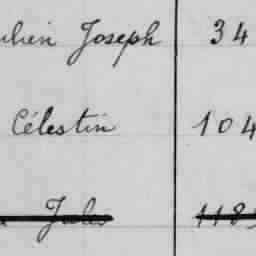 Joseph 34
Célestin 104
Jules 118